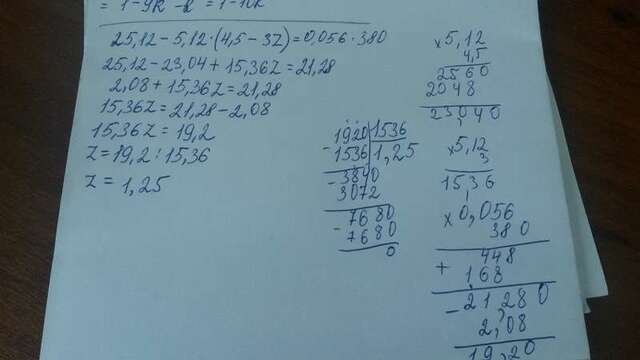 = 1-9k -k = 1-10k
25,12-5,12·(4,5-3z)=0,056·380
25,12-23,04+15,36z=21,28
2,08+15,36z=21,28
15,36z=21,28-2,08
15,36z=19,2
z=19,2:15,36
z=1,25
1920|1536
-1536|1,25
-3840
3072
-7680
-7680
0
×5,12
4,5
2560
2048
23040
×5,12
3
15,36
×0,056
380
+448
168
-21280
2,08
19,20